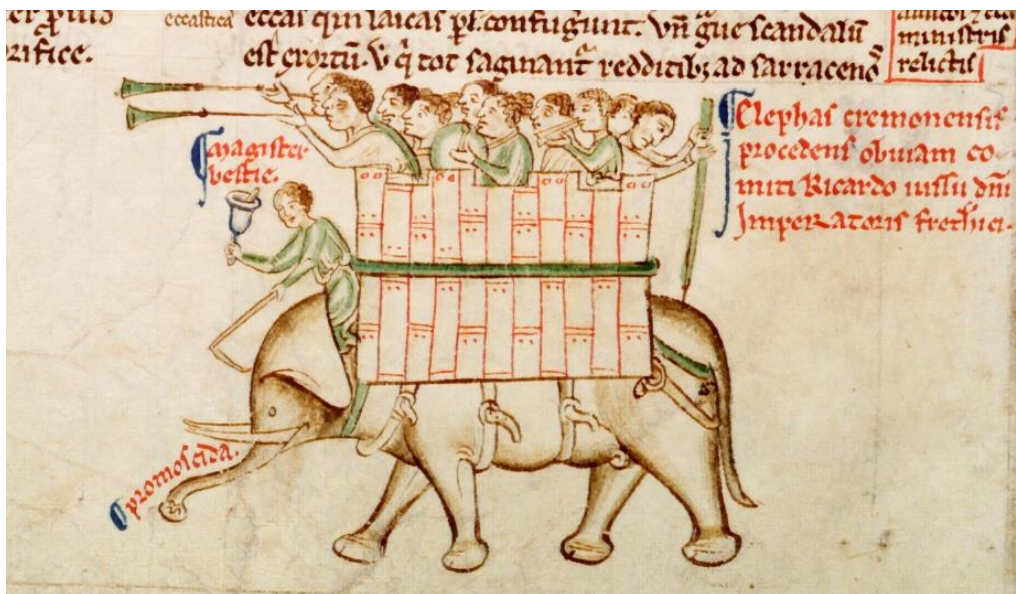 eccastica
eccas qui laicas pl. confugiunt. Vn̄ gue scandalū
est exortū. v q̄ tot saginant redditibꝫ ad sarracenos
rifice.
ministris
relictis
magister
bestie.
Elephas cremonensis
procedens obuiam co
miti Ricardo iussu dn̄i
Imperatoris frethici.
promoscida.